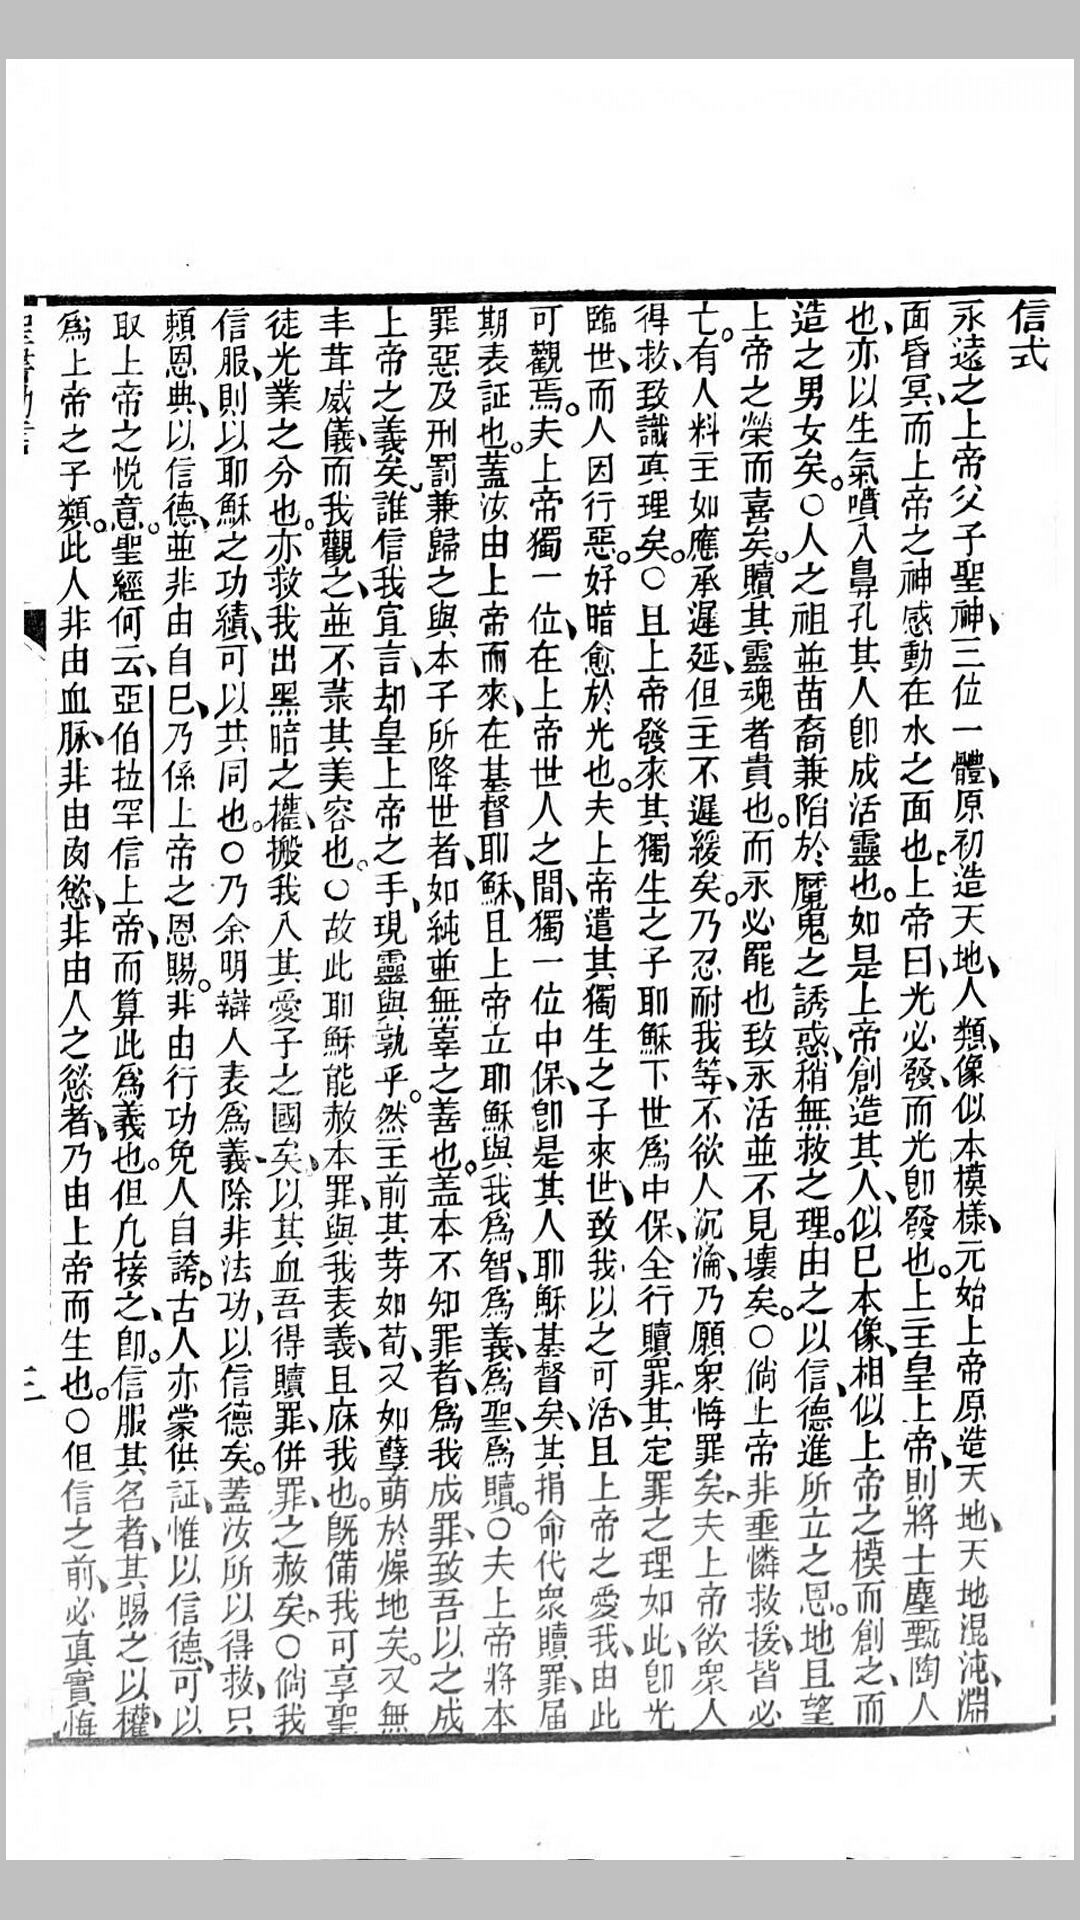 信式
永遠之上帝父子聖神、三位一體、原初造天地、人類、像似本模樣、元始上帝原造天地、天地混沌、淵
面昏冥、而上帝之神感動在水之面也、上帝曰、光必發、而光卽發也。上主皇上帝、則將士塵甄陶人
也、亦以生氣噴入鼻孔其人卽成活靈也。如是上帝創造其人、似巳本像、相似上帝之模而創之、而
造之男女矣。〇人之祖並苗裔兼陷於魔鬼之誘惑、稍無救之理。由之以信、德進所立之恩。地且望
上帝之榮而喜矣。贖其靈魂者貴也。而永必罷也致永活並不見壞矣。〇倘上帝非垂憐救援、皆必
亡。有人料主如應承遲延、但主不遲緩矣。乃忍耐我等、不欲人沉淪、乃願衆悔罪矣、夫上帝欲衆人
得救、致識真理矣。〇且上帝發來其獨生之子耶穌下世爲中保、全行贖罪、其定罪之理如此、卽光
臨世、而人因行惡。好暗愈於光也。夫上帝遣其獨生之子來世、致我以之可活、且上帝之愛我、由此
可觀焉。夫上帝獨一位、在上帝世人之間、獨一位中保、卽是其人耶穌基督矣、其捐命代衆贖罪、屆
期表証也。蓋汝由上帝而來、在基督耶穌、且上帝立耶穌與我爲智、爲義、爲聖、爲贖。〇夫上帝將本
罪惡及刑罰兼歸之與本子所降世者、如純並無辜之善也。盖本不知罪者、爲我成罪、致吾以之成
上帝之義矣、誰信我宜言、却皇上帝之手、現靈與孰乎。然主前其芽如荀、又如孽萌於燥地矣。又無
丰茸威儀、而我觀之、並不菉其美容也。〇故此耶穌能赦本罪、與我表義、且庥我也。旣備我可享聖
徒光業之分也。亦救我出黑暗之權、搬我入其愛子之國矣、以其血吾得贖罪、併罪之赦矣。〇倘我
信服、則以耶穌之功績、可以共同也。〇乃余明辯人表爲義、除非法功、以信德矣。蓋汝所以得救、只
頼恩典、以信德、並非由自巳、乃係上帝之恩賜。非由行功免人自誇。古人亦蒙供証、惟以信德、可以
取上帝之悅意。聖經何云、亞伯拉罕信上帝、而算此爲義也。但凢接之、卽。信服其名者、其賜之以權、
爲上帝之子類。此人非由血脉、非由肉慾、非由人之慾者、乃由上帝而生也。〇但信之前、必真實悔
三